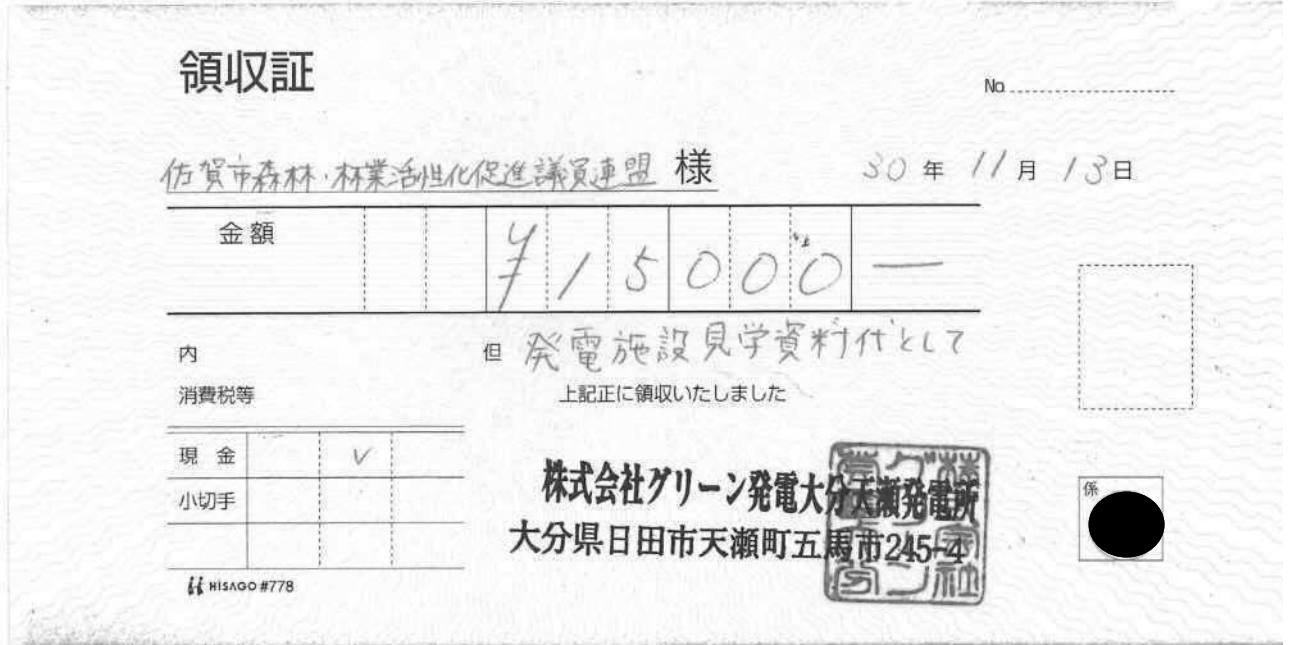 領収証
No.
佐賀市森林・林業活性化促進議員連盟 様 30年 11月 13日
金額 ¥15000—
内 但 発電施設見学資料代として
消費税等 上記正に領収いたしました
現金 ✓
小切手
株式会社グリーン発電大分天瀬発電所
大分県日田市天瀬町五馬市245-4
係
HISAGO #778